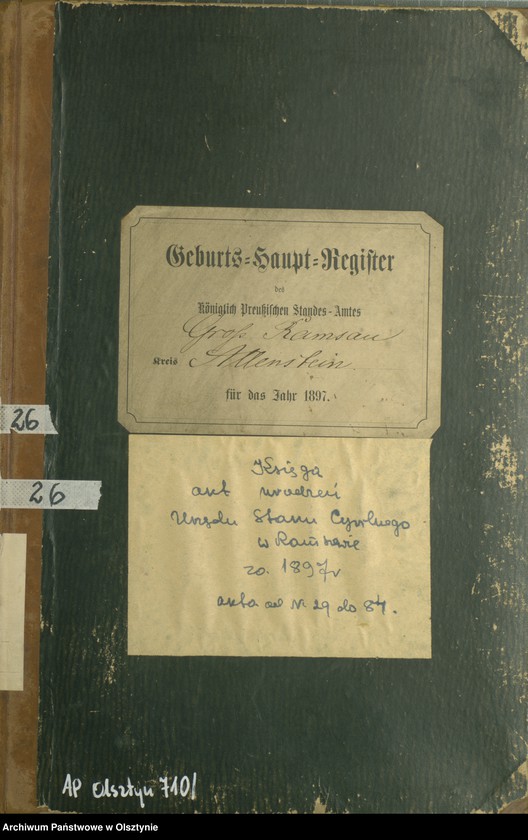 Geburts-Haupt-Register
des
Königlich Preußischen Standes-Amtes
Groß Ramsau
Kreis Allenstein
für das Jahr 1897.
26
26
Księga
akt urodzeń
Urzędu Stanu Cywilnego
w Ramsowie
za 1897 r
akta od Nr 29 do 84.
AP Olsztyn 710/
Archiwum Państwowe w Olsztynie